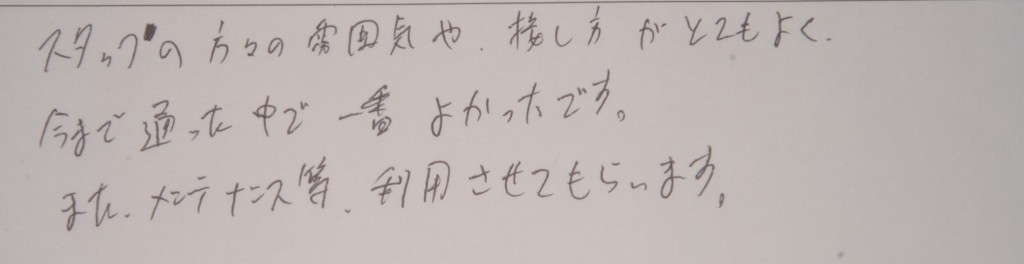 スタッフの方々の雰囲気や、接し方がとてもよく、
今まで通った中で一番よかったです。
また、メンテナンス等、利用させてもらいます。